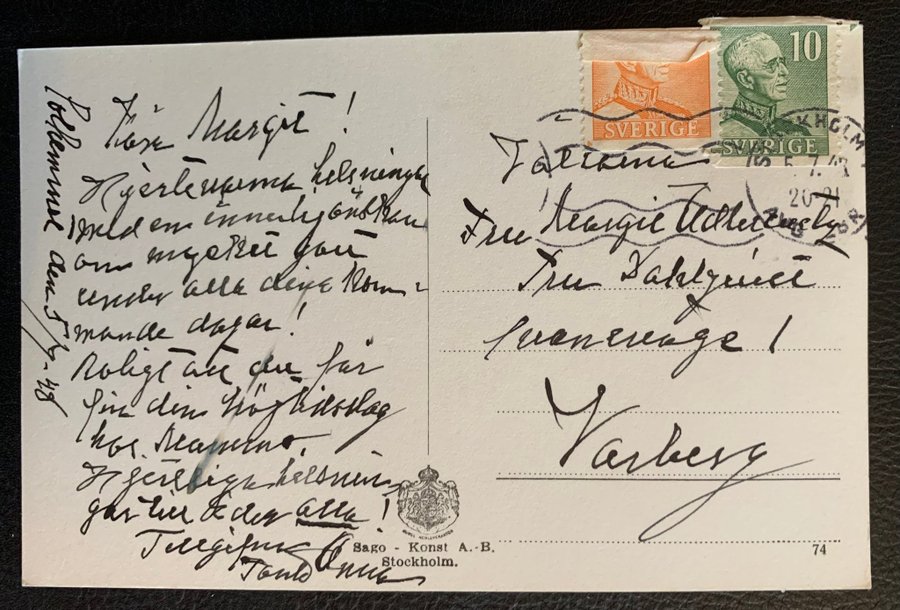 Kära Margit!
Hjärtevarma helsningar
med en innerlig önskan
om mycket gott
under alla dina kom-
mande dagar!
Roligt att du får
fira din högtidsdag
hos Mamma
Hjertliga helsnin-
gar till Eder alla!
Tillgifna
Tant Anna
den 5/7-48
SVERIGE
10
SVERIGE
STOCKHOLM
5.7.48
20-21
Fru Margit
Fru Dahlquist
Svanevage 1
Varberg
Sago - Konst A.-B.
Stockholm.
74